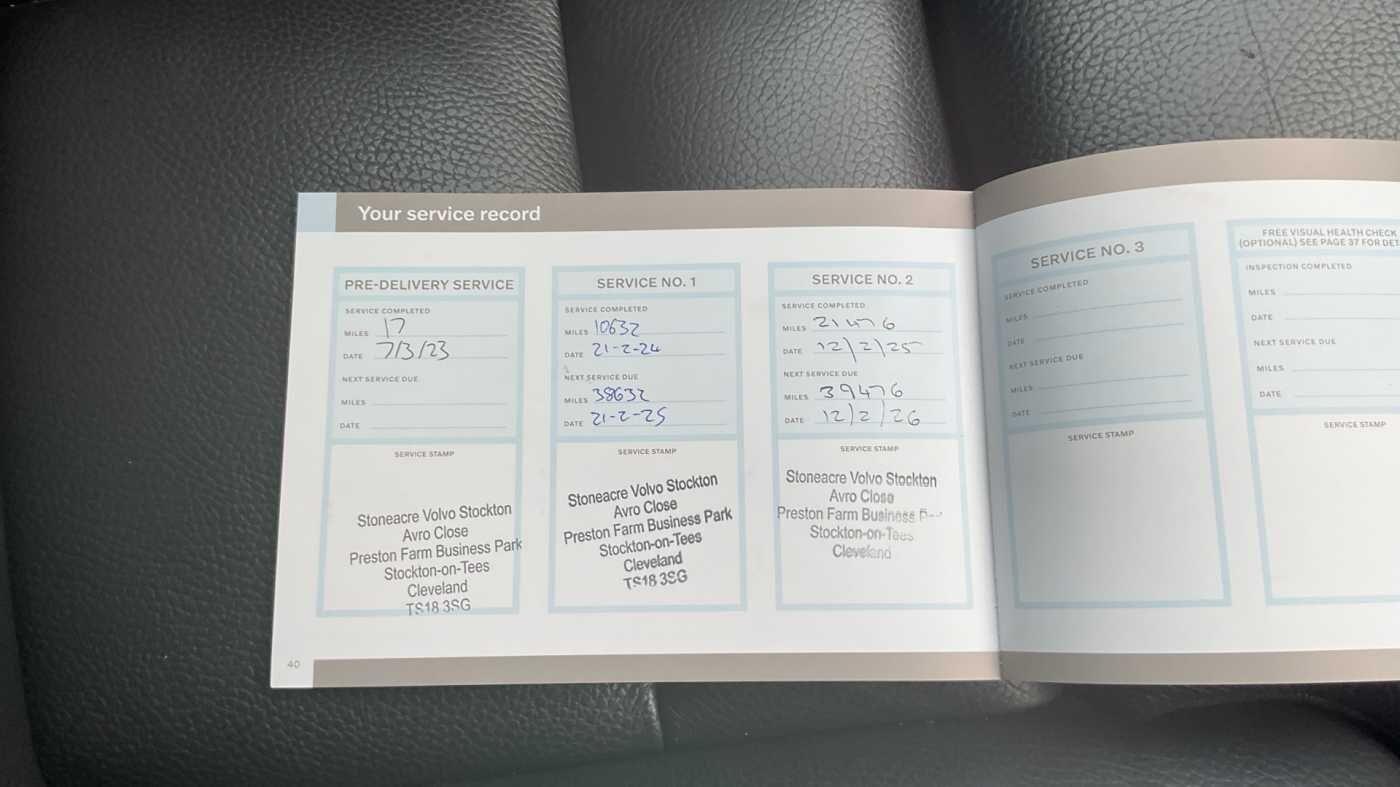 Your service record
PRE-DELIVERY SERVICE
SERVICE COMPLETED
MILES 17
DATE 7/3/23
NEXT SERVICE DUE
MILES
DATE
SERVICE STAMP
Stoneacre Volvo Stockton
Avro Close
Preston Farm Business Park
Stockton-on-Tees
Cleveland
TS18 3SG
SERVICE NO. 1
SERVICE COMPLETED
MILES 10632
DATE 21-2-24
NEXT SERVICE DUE
MILES 38632
DATE 21-2-25
SERVICE STAMP
Stoneacre Volvo Stockton
Avro Close
Preston Farm Business Park
Stockton-on-Tees
Cleveland
TS18 3SG
SERVICE NO. 2
SERVICE COMPLETED
MILES 21476
DATE 12/2/25
NEXT SERVICE DUE
MILES 39476
DATE 12/2/26
SERVICE STAMP
Stoneacre Volvo Stockton
Avro Close
Preston Farm Business
Stockton-on-Tees
Cleveland
40
SERVICE NO. 3
SERVICE COMPLETED
MILES
DATE
NEXT SERVICE DUE
MILES
DATE
SERVICE STAMP
FREE VISUAL HEALTH CHECK
(OPTIONAL) SEE PAGE 37 FOR DET
INSPECTION COMPLETED
MILES
DATE
NEXT SERVICE DUE
MILES
DATE
SERVICE STAMP